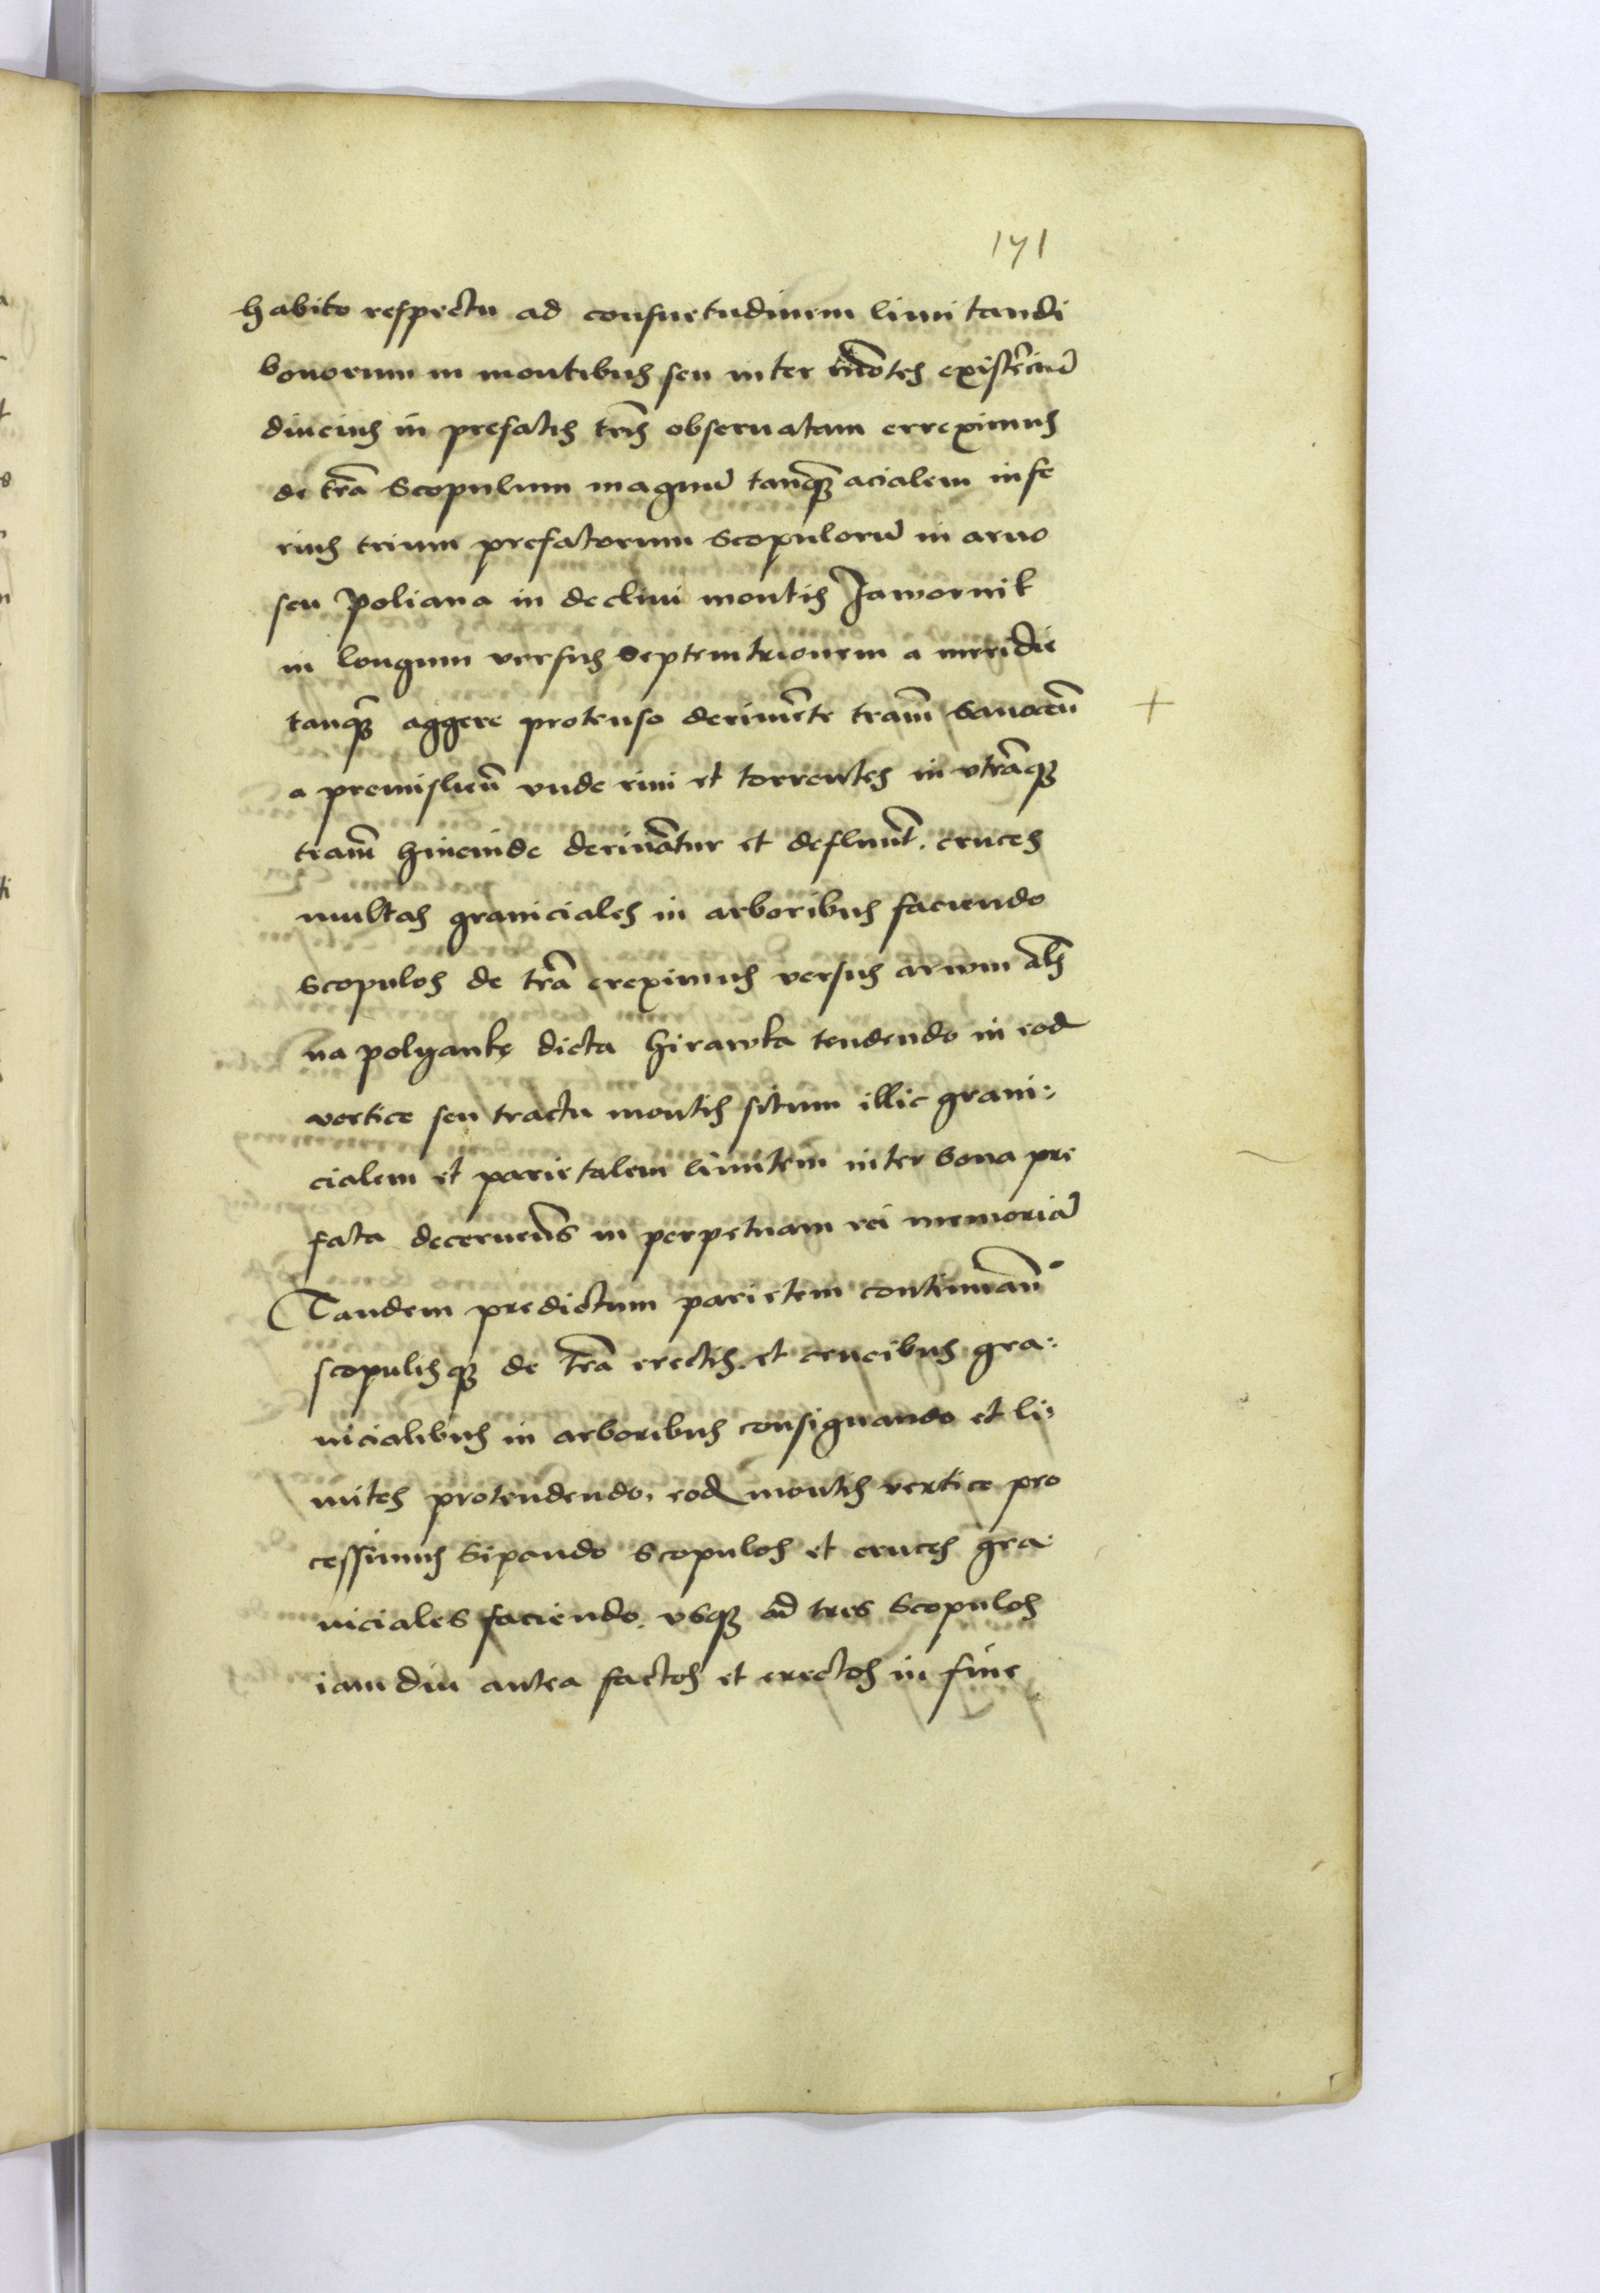 171
habito respectu ad consuetudinem limitandi
bonorum in montibus seu inter mo̅tes existe̅ciu̅
diucius in prefatis tr̅is obseruatam erreximus
de tr̅a Scopulum magnu̅ tanq̅ acialem infe
rius trium prefatorum Scopuloru̅ in aruo
seu Poliana in decliui montis Jawornik
in longum versus Septemtrionem a meridie
tanq̅ aggere protenso derime̅te tra̅m Sanocen̅
a premislien̅ vnde riui et torrentes in vtra̅q₃
tra̅m hincinde deriua̅tur et defluu̅t. cruces
multas graniciales in arboribus faciendo
Scopulos de tr̅a ereximus versus aruum al̅s
na polyankę dicta hirawka tendendo in eod̅
vertice seu tractu montis situm illic grani:
cialem et parietalem limitem inter bona pre
fata decernen̅s in perpetuam rei memoria̅
Tandem predictum parietem continuan̅º
scopulisq₃ de tr̅a erectis. et crucibus gra:
nicialibus in arboribus consignando et li:
mites protendendo. eod̅ montis vertice pro
cessimus Sipando Scopulos et cruces gra
niciales faciendo. vsq₃ ad tres Scopulos
iam diu antea factos et erectos in fine
+